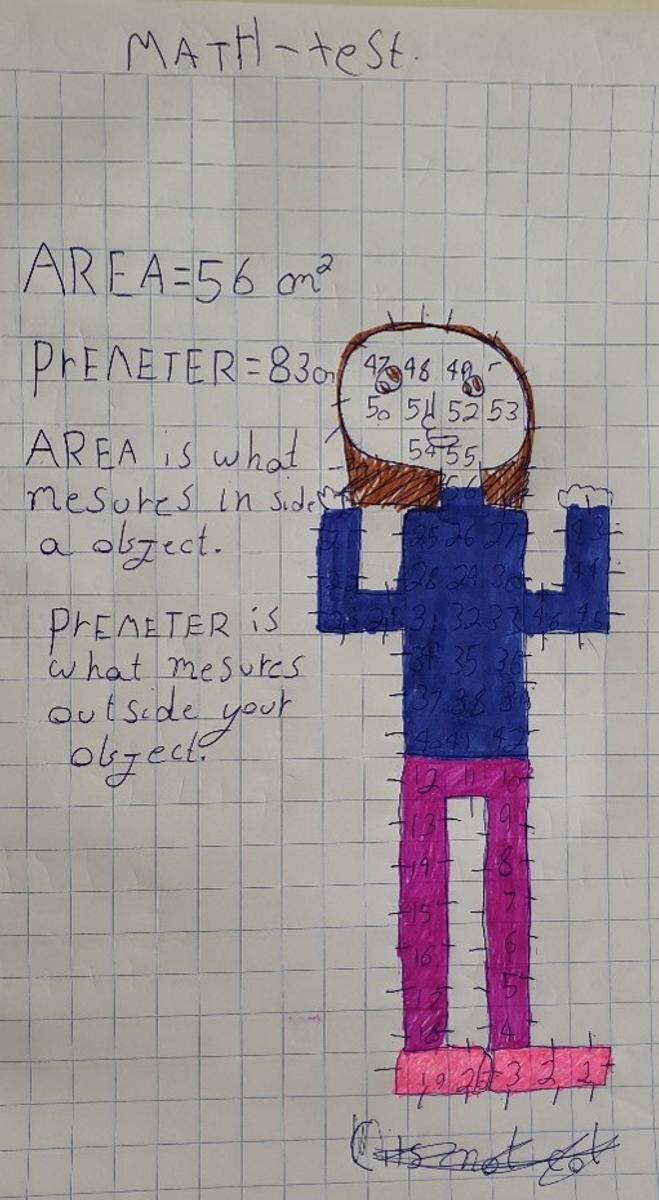 MATH-test.
AREA=56 cm²
PrEMETER=83cm
AREA is what
mesures in side
a object.
PrEMETER is
what mesures
outside your
object.
47 48 49
50 51 52 53
54 55
56
25 26 27 43
28 29 30 44
23 24 31 32 33 46 45
34 35 36
37 38 39
40 41 42
12 11 10
13 9
14 8
15 7
16 6
17 5
18 4
19 20 3 2 1